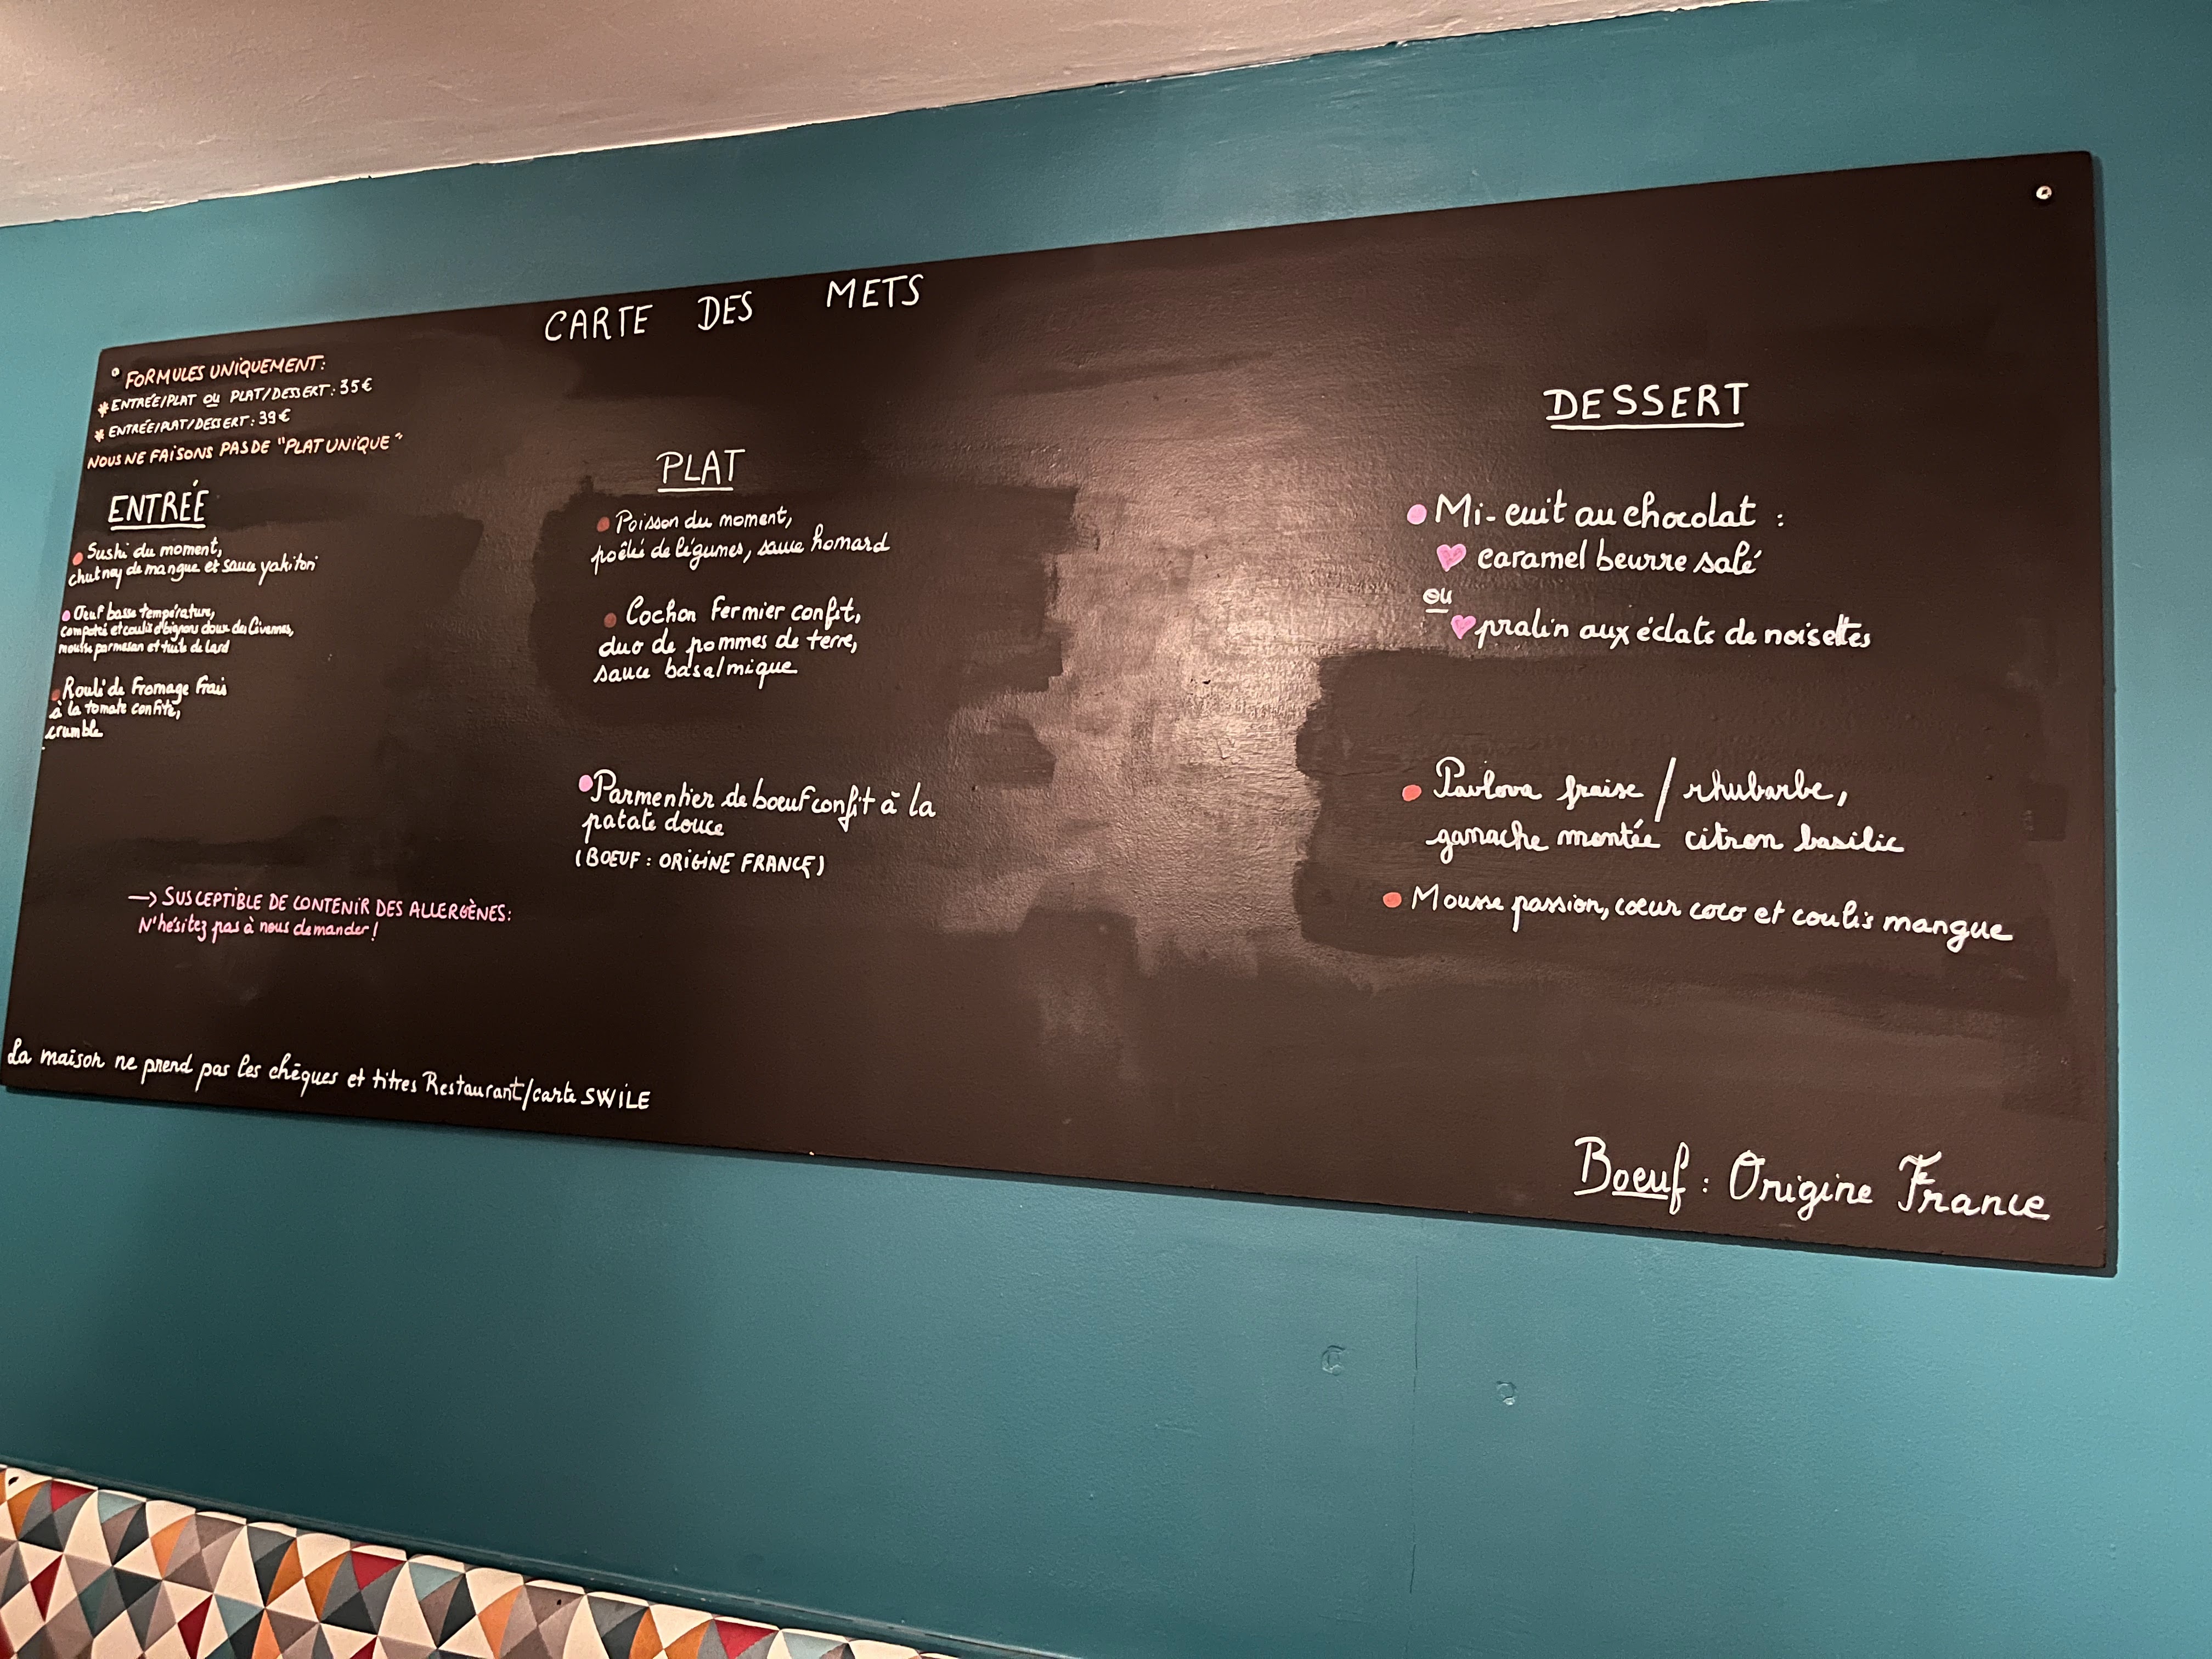 CARTE DES METS
FORMULES UNIQUEMENT:
* ENTRÉE/PLAT OU PLAT/DESSERT: 35€
* ENTRÉE/PLAT/DESSERT: 39€
NOUS NE FAISONS PAS DE "PLAT UNIQUE"
ENTRÉE
Sushi du moment,
chutney de mangue et sauce yakitori
Œuf basse température,
compoté et coulis d'oignons doux des Cévennes,
mousse parmesan et tuile de lard
Roulé de Fromage Frais
à la tomate confite,
crumble
→ SUSCEPTIBLE DE CONTENIR DES ALLERGÈNES:
N'hésitez pas à nous demander!
La maison ne prend pas les chèques et titres Restaurant/carte SWILE
PLAT
Poisson du moment,
poêlé de légumes, sauce homard
Cochon Fermier confit,
duo de pommes de terre,
sauce basalmique
Parmentier de boeuf confit à la
patate douce
(BOEUF: ORIGINE FRANCE)
DESSERT
Mi-cuit au chocolat :
caramel beurre salé
ou
pralin aux éclats de noisettes
Pavlova fraise / rhubarbe,
ganache montée citron basilic
Mousse passion, cœur coco et coulis mangue
Boeuf : Origine France